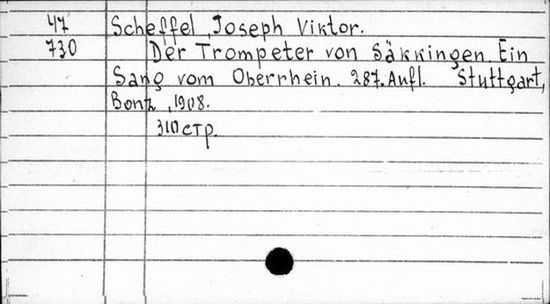 47 Scheffel, Joseph Viktor.
730 Der Trompeter von Säkkingen. Ein
Sang vom Oberrhein. 287. Aufl. Stuttgart,
Bonz, 1908.
310 стр.